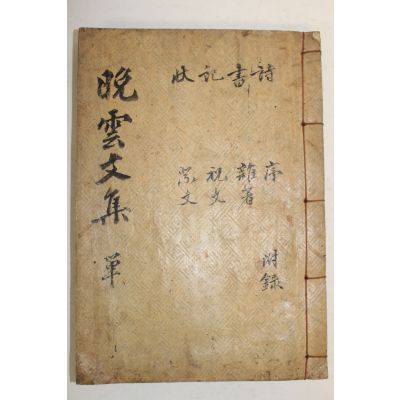 晚雲文集 單
詩 序 附錄
書 雜著
記 祝文
狀 祭文